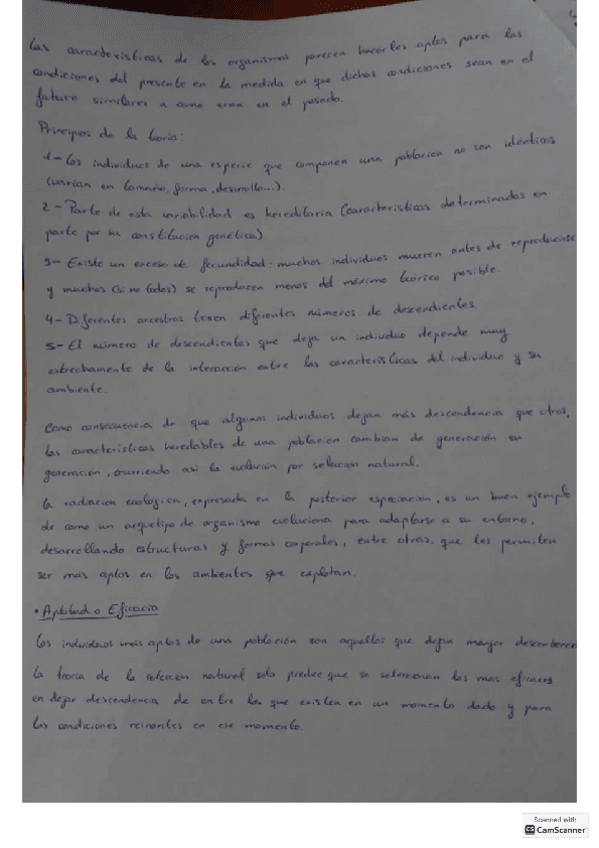 Las características de los organismos parecen hacerlos aptos para las
condiciones del presente en la medida en que dichas condiciones sean en el
futuro similares a como eran en el pasado.
Principios de la teoría:
1- Los individuos de una especie que componen una población no son idénticos
(varían en tamaño, forma, desarrollo...).
2- Parte de esta variabilidad es hereditaria (características determinadas en
parte por su constitución genética)
3- Existe un exceso de fecundidad: muchos individuos mueren antes de reproducirse
y muchos (si no todos) se reproducen menos del máximo teórico posible.
4- Diferentes ancestros tienen diferentes números de descendientes.
5- El número de descendientes que deja un individuo depende muy
estrechamente de la interacción entre las características del individuo y su
ambiente.
Como consecuencia de que algunos individuos dejan más descendencia que otros,
las características heredables de una población cambian de generación en
generación, ocurriendo así la evolución por selección natural.
La radiación ecológica, expresada en la posterior especiación, es un buen ejemplo
de como un arquetipo de organismo evoluciona para adaptarse a su entorno,
desarrollando estructuras y formas corporales, entre otras, que les permiten
ser más aptos en los ambientes que explotan.
• Aptitud o Eficacia
Los individuos más aptos de una población son aquellos que dejan mayor
la teoría de la selección natural solo predice que se seleccionan los más eficaces
en dejar descendencia de entre los que existen en un momento dado y para
las condiciones reinantes en ese momento.
Scanned with
CS CamScanner